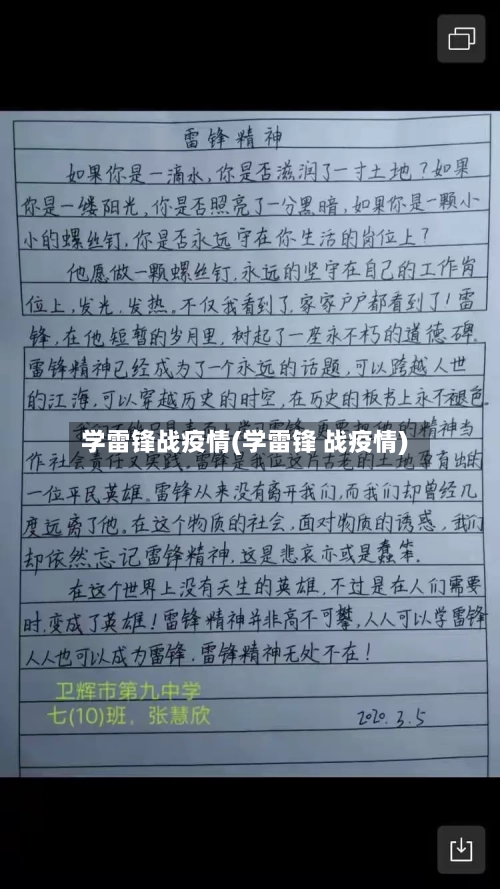 雷锋精神
如果你是一滴水,你是否滋润了一寸土地?如果
你是一缕阳光,你是否照亮了一分黑暗,如果你是一颗小
小的螺丝钉,你是否永远守在你生活的岗位上?
他愿做一颗螺丝钉,永远的坚守在自己的工作岗
位上,发光.发热。不仅我看到了,家家户户都看到了!雷
锋,在他短暂的岁月里,树起了一座永不朽的道德碑。
雷锋精神已经成为了一个永远的话题,可以跨越人世
的江海,可以穿越历史的时空,在历史的板书上永不褪色
的精神当
学雷锋战疫情(学雷锋 战疫情)
作社会责任又实践,雷锋是我位这片古老的土地孕育出的
一位平民英雄。雷锋从来没有离开我们,而我们却曾经几
度远离了他。在这个物质的社会,面对物质的诱惑,我们
却依然忘记雷锋精神,这是悲哀亦或是蠢笨.
在这个世界上没有天生的英雄,不过是在人们需要
时,变成了英雄!雷锋精神并非高不可攀,人人可以学雷锋
人人也可以成为雷锋.雷锋精神无处不在!
卫辉市第九中学
七(10)班,张慧欣
2020.3.5